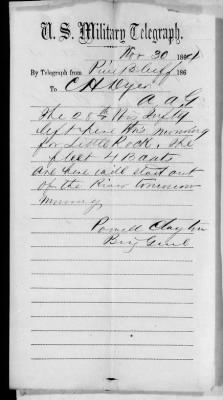 U. S. Military Telegraph.
Nov 30 1864
By Telegraph from Pine Bluff 186
To C H Dyer
A A G
The 28th Wis Infty
left here this morning
for Little Rock. The
fleet 4 Boats
are here will start out
of the River tomorrow
morning
Powell Clayton
Brig Genl